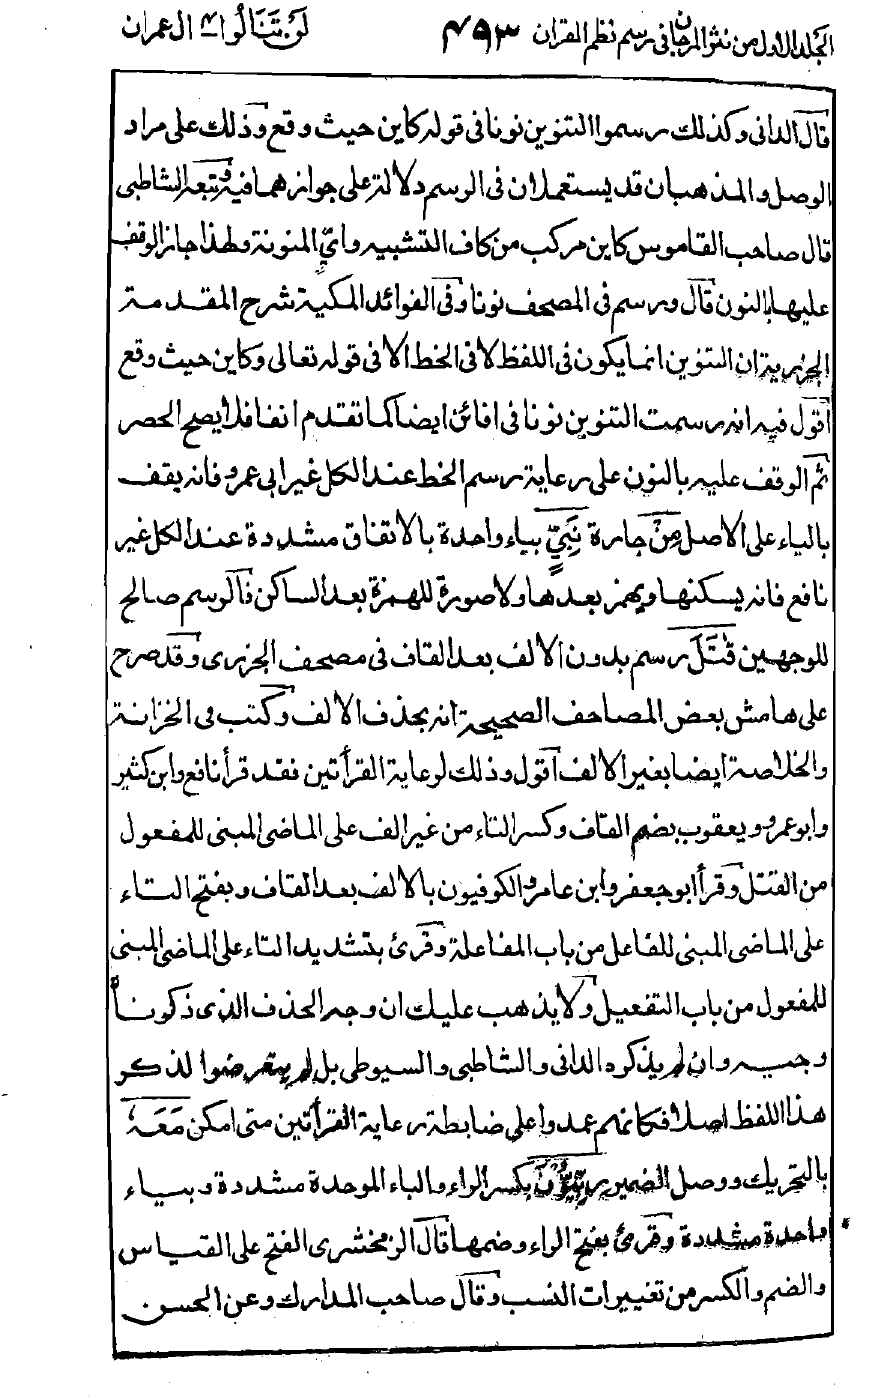 الجلد الاول من نثر المرجان فى رسم نظم القران ٤٩٣ لن تنالوا ٤ ال عمران
قال الدانى وكذلك رسموا التنوين نونا فى قوله كاين حيث وقع وذلك على مراد
الوصل والمذهبان قد يستعملان فى الرسم دلالة على جوازهما فيه وتبعه الشاطبى
قال صاحب القاموس كاين مركب من كاف التشبيه واىّ المنونة ولهذا جاز الوقف
عليها بالنون قال ورسم فى المصحف نونا وفى الفوائد المكية شرح المقدمة
الجزرية ان التنوين انما يكون فى اللفظ لا فى الخط الا فى قوله تعالى وكاين حيث وقع
اقول فيه انه رسمت التنوين نونا فى افائن ايضا كما تقدم انفا فلا يصح الحصر
ثم الوقف عليه بالنون على رعاية رسم الخط عند الكل غير ابى عمرو فانه يقف
بالياء على الاصل مِنْ جارة نَبِيٍّ بياء واحدة بالاتفاق مشددة عند الكل غير
نافع فانه يسكنها ويهمز بعدها ولا صورة للهمزة بعد الساكن فالرسم صالح
للوجهين قٰتَلَ رسم بدون الالف بعد القاف فى مصحف الجزرى وقد صرح
على هامش بعض المصاحف الصحيحة انه بحذف الالف وكتب فى الخزانة
والخلاصة ايضا بغير الالف اقول وذلك لرعاية القرأتين فقد قرأ نافع وابن كثير
وابو عمرو ويعقوب بضم القاف وكسر التاء من غير الف على الماضى المبنى للمفعول
من القتل وقرأ ابو جعفر وابن عامر والكوفيون بالالف بعد القاف وبفتح التاء
على الماضى المبنى للفاعل من باب المفاعلة وقرئ بتشديد التاء على الماضى المبنى
للمفعول من باب التفعيل ولا يذهب عليك ان وجه الحذف الذى ذكرنا
وجيه وان لم يذكره الدانى والشاطبى والسيوطى بل لم يتعرضوا لذكر
هذا اللفظ اصلا فكانهم عمدوا على ضابطة رعاية القرأتين متى امكن مَعَهٗ
بالتحريك ووصل الضمير رِبِّيُّوْنَ بكسر الراء والباء الموحدة مشددة وبياء
واحدة مشددة وقرئ بفتح الراء وضمها قال الزمخشرى الفتح على القياس
والضم والكسر من تغييرات النسب وقال صاحب المدارك وعن الحسن